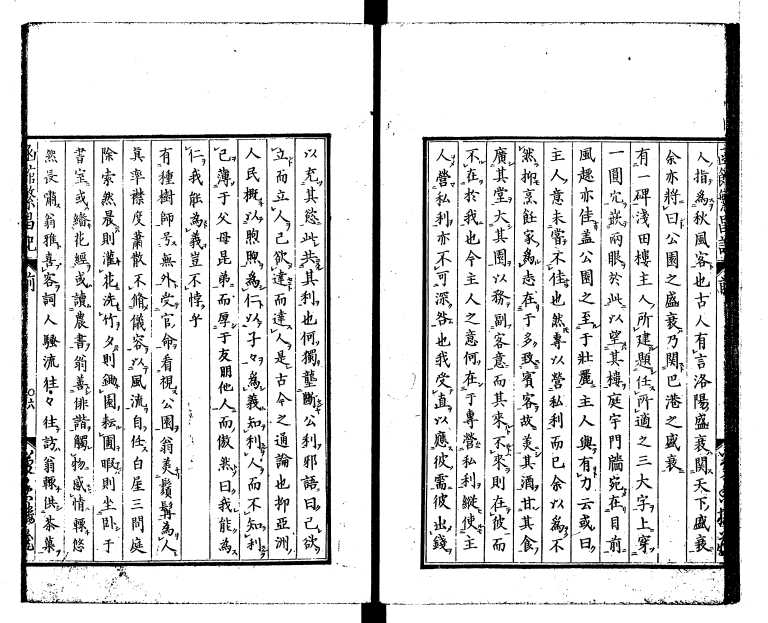 人指為秋風客也古人有言洛陽盛衰関天下盛衰
余亦将曰公園之盛衰乃関巴港之盛衰
有一碑浅田楼主人所建題任所適之三大字上穿
一圓穴嵌両眼於此以望其楼庭宇門牆宛在目前
風趣亦佳蓋公園之至于壮麗主人與有力云或曰
主人意未嘗不佳也然専以營私利而已余以為不
然抑烹飪家為志在于多致賓客故美其酒甘其食
廣其堂大其園以務副客意而其来不来則在彼而
不在於我也今主人之意何在于専營私利縦使主
人營私利亦不可深咎也我受直以應彼需彼出銭
以充其慾此共其利也何獨壟斷公利邪語曰己欲
立而立人己欲達而達人是古今之通論也抑亞洲
人民概以煦煦為仁以孑々為義知利人而不知利
己薄于父母昆弟而厚于友朋他人而傲然曰我能為
仁我能為義豈不悖乎
有種樹師号無外受官命看視公園翁美鬚髯為人
真率襟度蕭散不脩儀容以風流自任白屋三間庭
除索然晨則灌花洗竹夕則鋤園耘圃暇則坐卧于
書室或繙花經或讀農書翁善俳諧觸物感情輙悠
然長嘯翁雅喜客詞人騒流往々往訪翁輙供茶菓
函館繁昌記
前
〇六